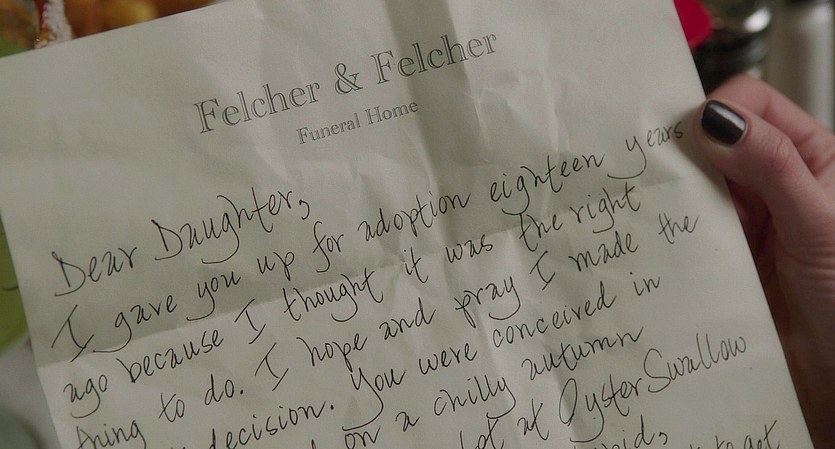 Felcher & Felcher
Funeral Home
Dear Daughter,
I gave you up for adoption eighteen years
ago because I thought it was the right
thing to do. I hope and pray I made the
decision. You were conceived in
on a chilly autumn
at OysterSwallow
to get